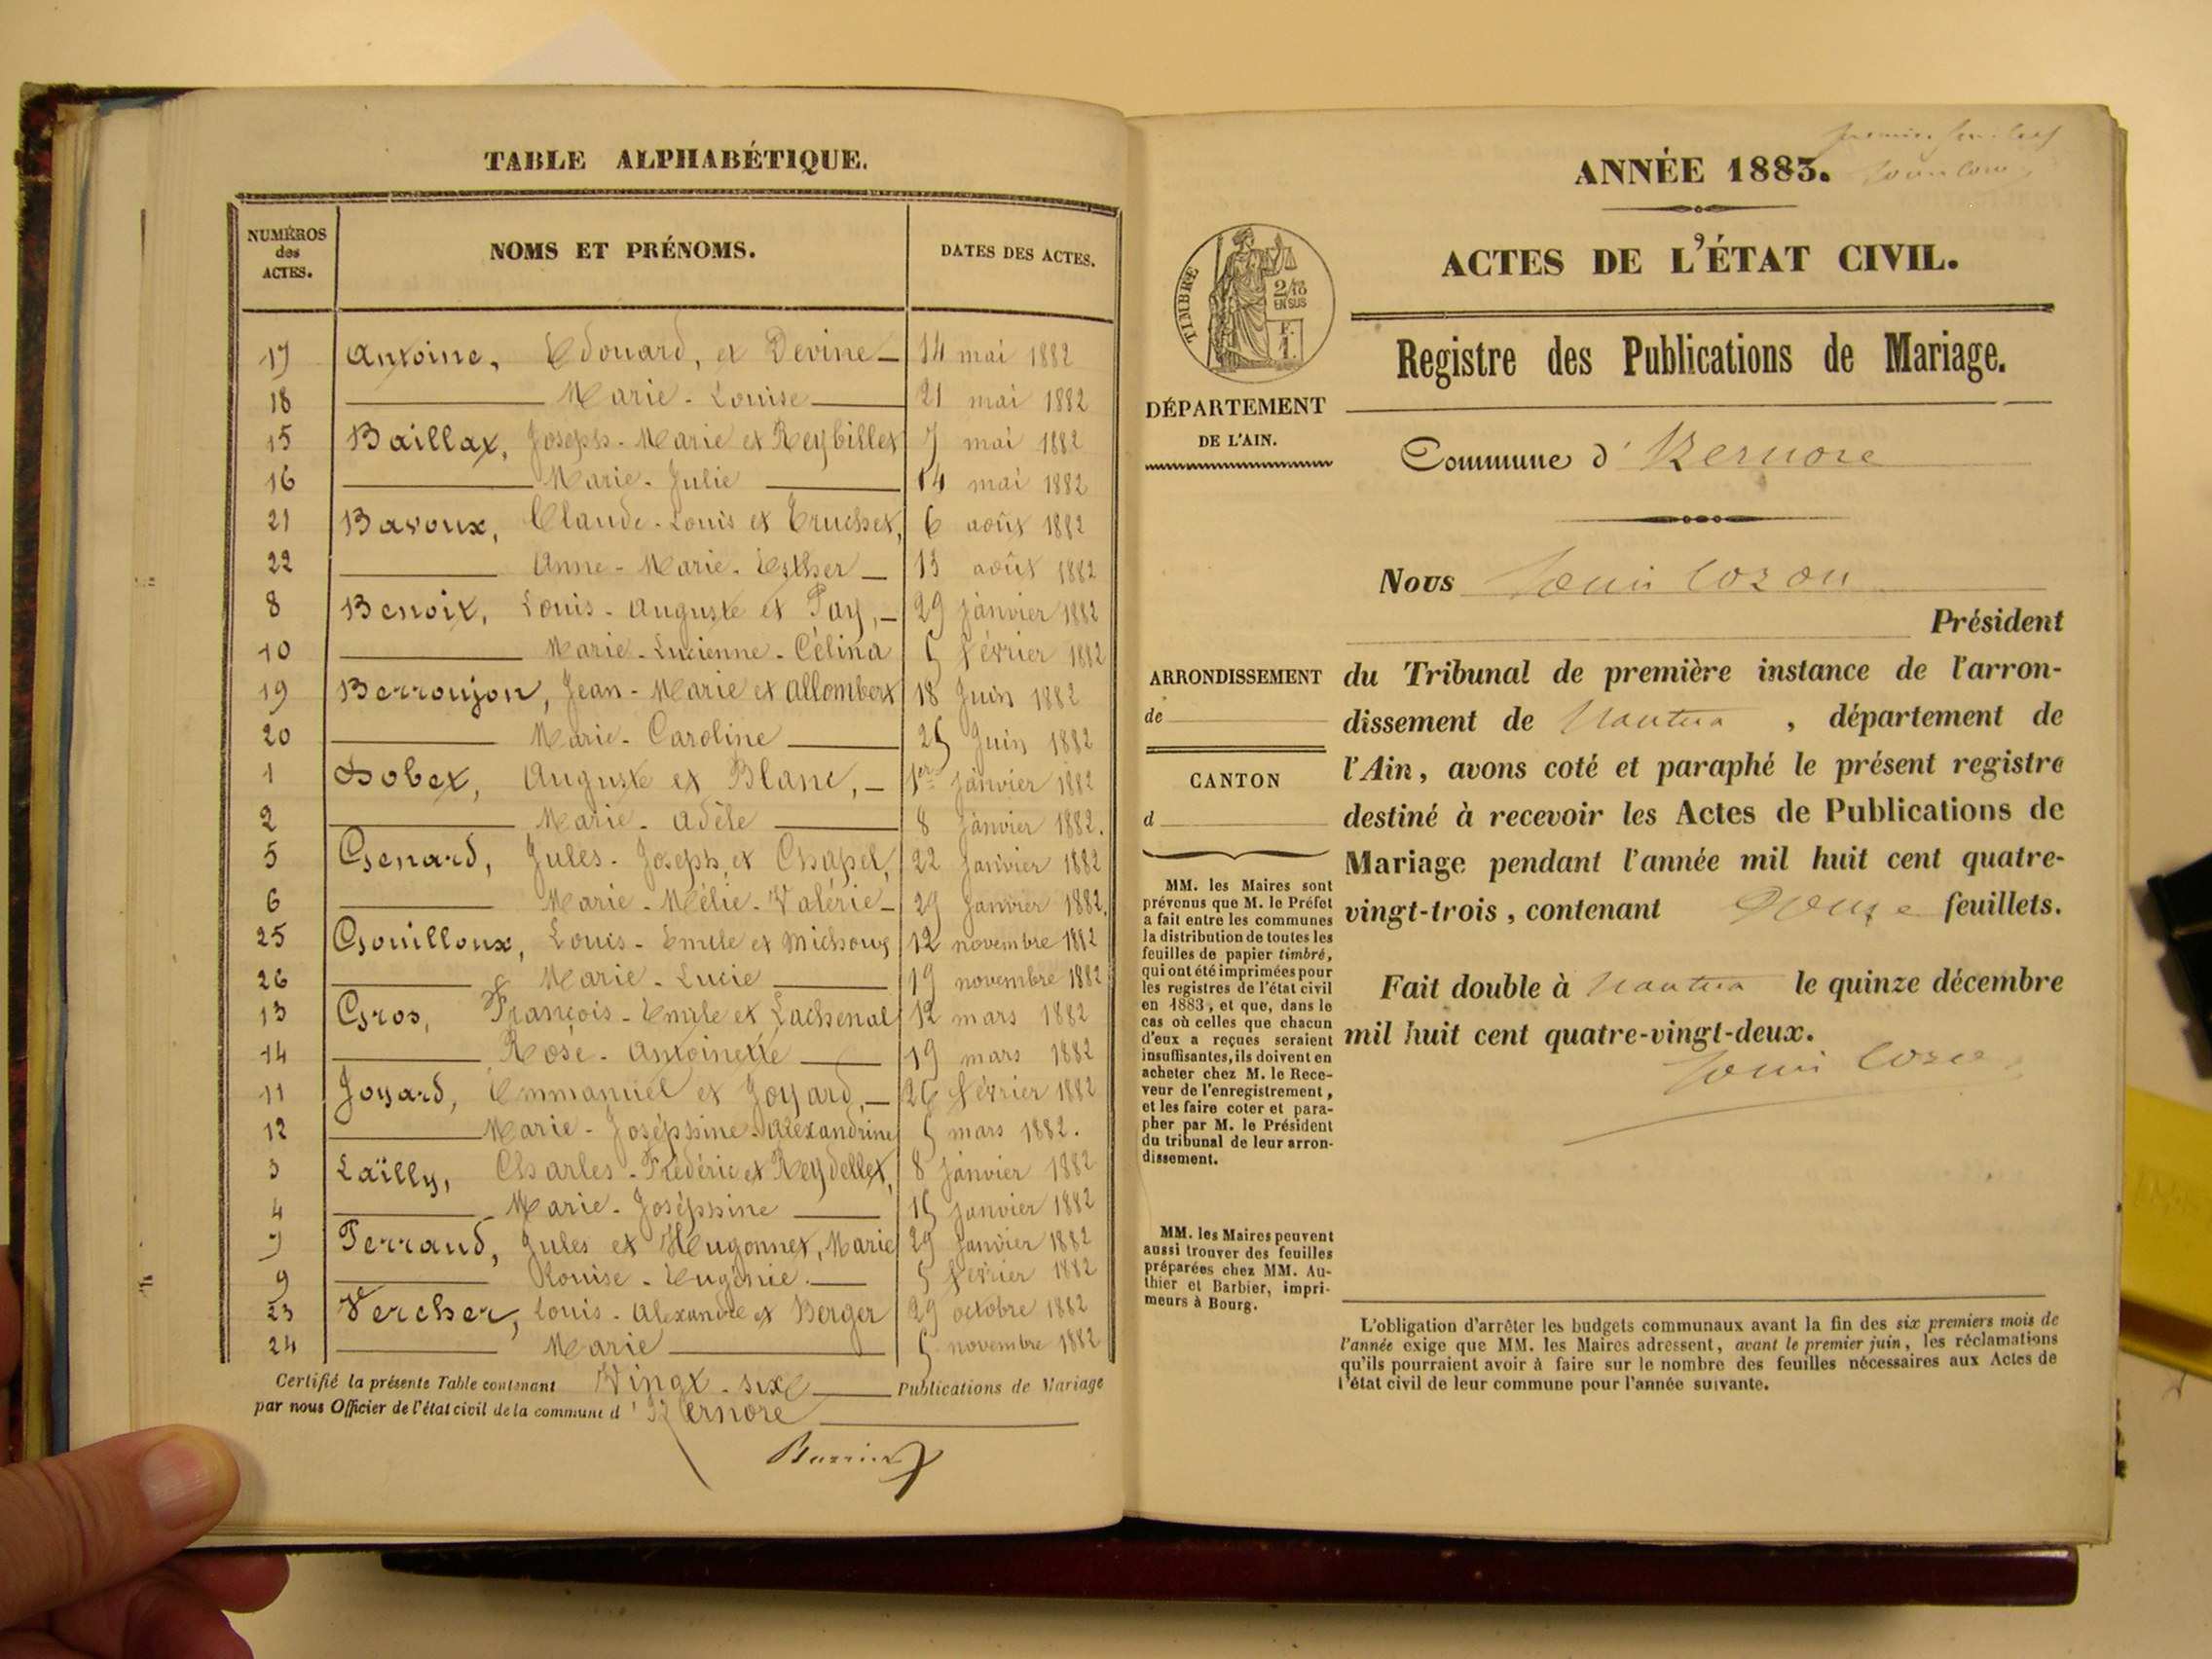 TABLE ALPHABÉTIQUE.
NUMÉROS des ACTES.
NOMS ET PRÉNOMS.
DATES DES ACTES.
17 Antoine, Edouard, et Devine 14 mai 1882
18 Marie-Louise 21 mai 1882
15 Baillat, Joseph-Marie et Reybillet 7 mai 1882
16 Marie-Julie 14 mai 1882
21 Bavoux, Claude-Louis et Truchet, 6 août 1882
22 Anne-Marie-Esther 13 août 1882
8 Benoit, Louis-Auguste et Pay, 29 janvier 1882
10 Marie-Lucienne-Célina 5 février 1882
19 Berroujon, Jean-Marie et Allombert 18 Juin 1882
20 Marie-Caroline 25 Juin 1882
1 Dobet, Auguste et Blanc, 1er janvier 1882
2 Marie-Adèle 8 Janvier 1882.
5 Genard, Jules-Joseph, et Chapel, 22 Janvier 1882
6 Marie-Mélie-Valérie 29 Janvier 1882.
25 Gouilloux, Louis-Emile et Michoux 12 novembre 1882
26 Marie-Lucie 19 novembre 1882
13 Gros, François-Emile et Lachenal 12 mars 1882
14 Rose-Antoinette 19 mars 1882
11 Joyard, Emmanuel et Joyard, 26 février 1882
12 Marie-Joséphine-Alexandrine 5 mars 1882.
3 Laïlly, Charles-Frédéric et Reydellet, 8 janvier 1882
4 Marie-Joséphine 15 janvier 1882
7 Perraud, Jules et Hugonnet, Marie 29 janvier 1882
9 Louise-Eugénie. 5 février 1882
23 Vercher, Louis-Alexandre et Berger 29 octobre 1882
24 Marie 5 novembre 1882
Certifié la présente Table contenant Vingt-six Publications de Mariage
par nous Officier de l'état civil de la commune d'Izernore
ANNÉE 1883.
ACTES DE L'ÉTAT CIVIL.
TIMBRE
2/10 EN SUS
F. 1.
Registre des Publications de Mariage.
DÉPARTEMENT
DE L'AIN.
Commune d'Izernore
Nous Louis Cozon
Président
ARRONDISSEMENT
de
CANTON
d
du Tribunal de première instance de l'arron-
dissement de Nantua, département de
l'Ain, avons coté et paraphé le présent registre
destiné à recevoir les Actes de Publications de
Mariage pendant l'année mil huit cent quatre-
vingt-trois, contenant feuillets.
Fait double à Nantua le quinze décembre
mil huit cent quatre-vingt-deux.
Louis Cozon
MM. les Maires sont
prévenus que M. le Préfet
a fait entre les communes
la distribution de toutes les
feuilles de papier timbré,
qui ont été imprimées pour
les registres de l'état civil
en 1883, et que, dans le
cas où celles que chacun
d'eux a reçues seraient
insuffisantes, ils doivent en
acheter chez M. le Rece-
veur de l'enregistrement,
et les faire coter et para-
pher par M. le Président
du tribunal de leur arron-
dissement.
MM. les Maires peuvent
aussi trouver des feuilles
préparées chez MM. Au-
thier et Barbier, impri-
meurs à Bourg.
L'obligation d'arrêter les budgets communaux avant la fin des six premiers mois de
l'année exige que MM. les Maires adressent, avant le premier juin, les réclamations
qu'ils pourraient avoir à faire sur le nombre des feuilles nécessaires aux Actes de
l'état civil de leur commune pour l'année suivante.